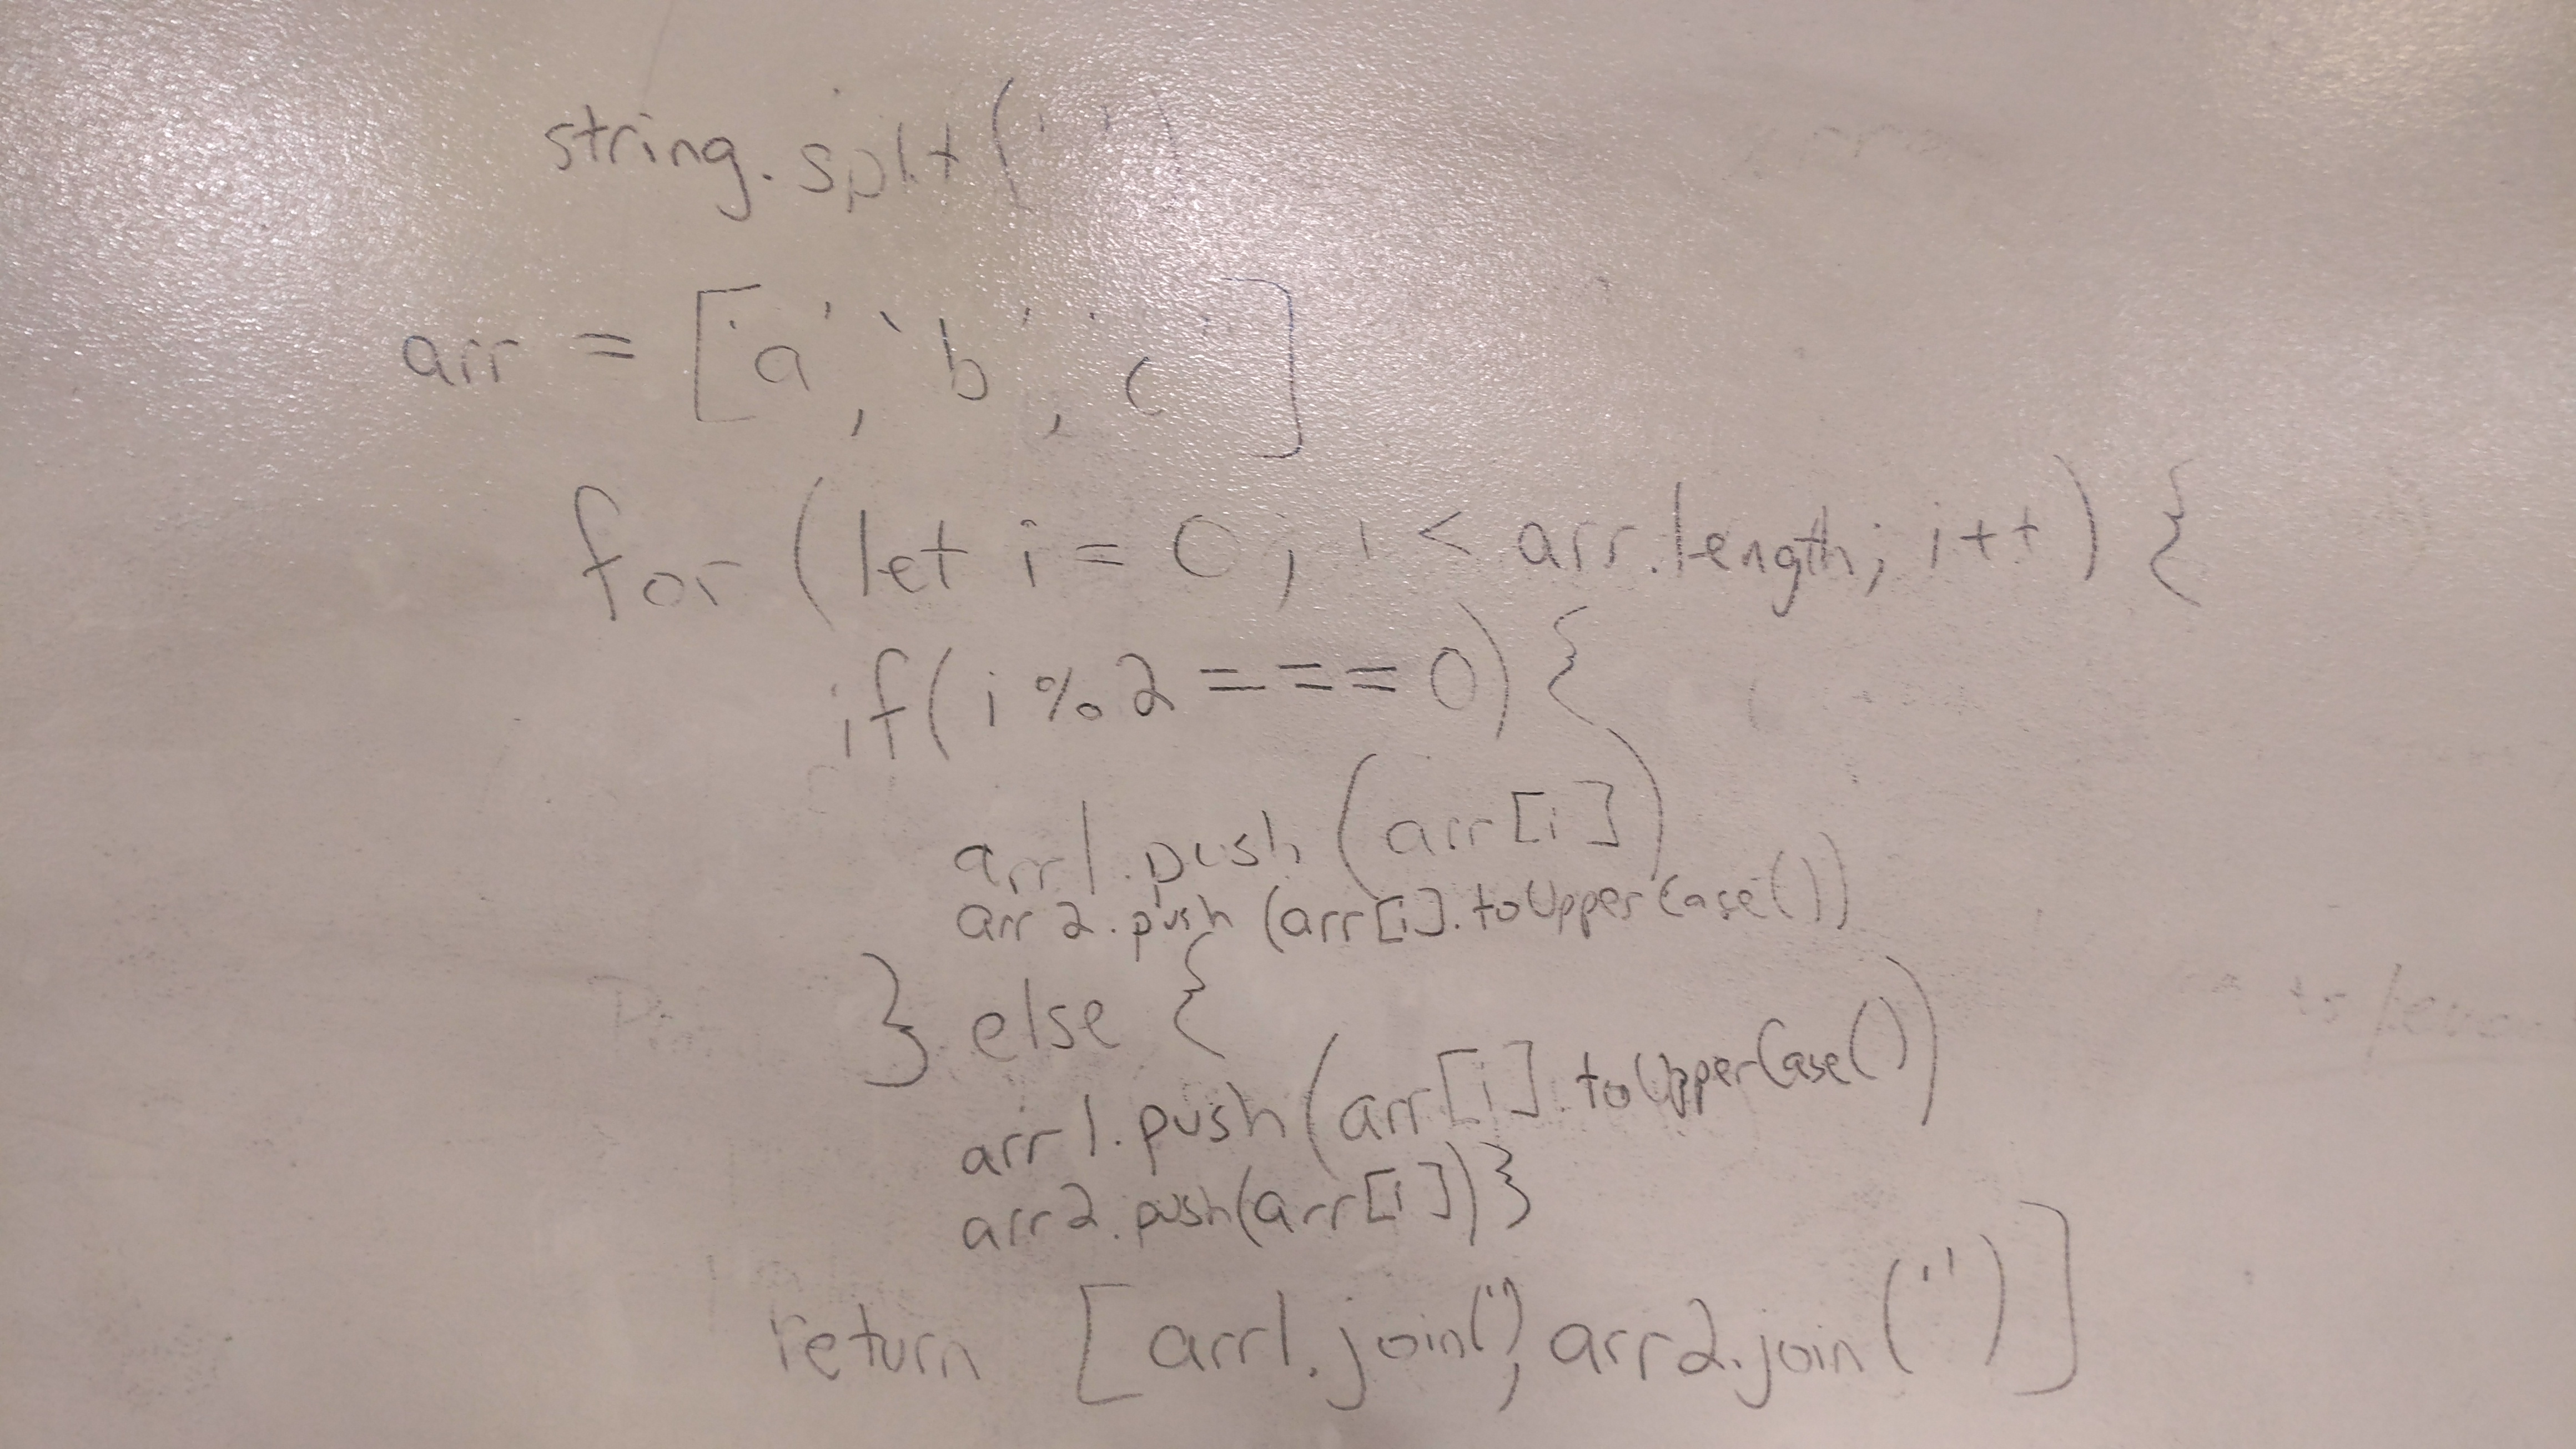 string.split('')
arr = ['a', 'b', 'c']
for (let i = 0; i < arr.length; i++) {
if(i%2 === 0) {
arr1.push(arr[i])
arr2.push(arr[i].toUpperCase())
} else {
arr1.push(arr[i].toUpperCase())
arr2.push(arr[i])}
return [arr1.join(''), arr2.join('')]